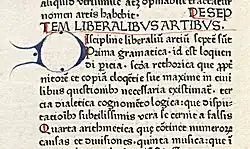 aliquid verisimile aut opinabile tractatur
nomen artis habebit. DE SEP
TEM LIBERALIBVS ARTIBVS.
Discipline liberaliū artiū septē sūt
Prima gramatica. id est loquen
di picia. secūda rethorica que ꝓpt̃
nitorē et copiā eloq̄tie sue maxime in ciui
libus questionib9 necessaria existimat̃.
tercia dialetica cognomēto logica: que dispu
tatōib9 subtilissimis vera secernit a falsis
Quarta arithmetica que cōtinet numeroꝝ
causas et diuisiones. quinta musica: que ī